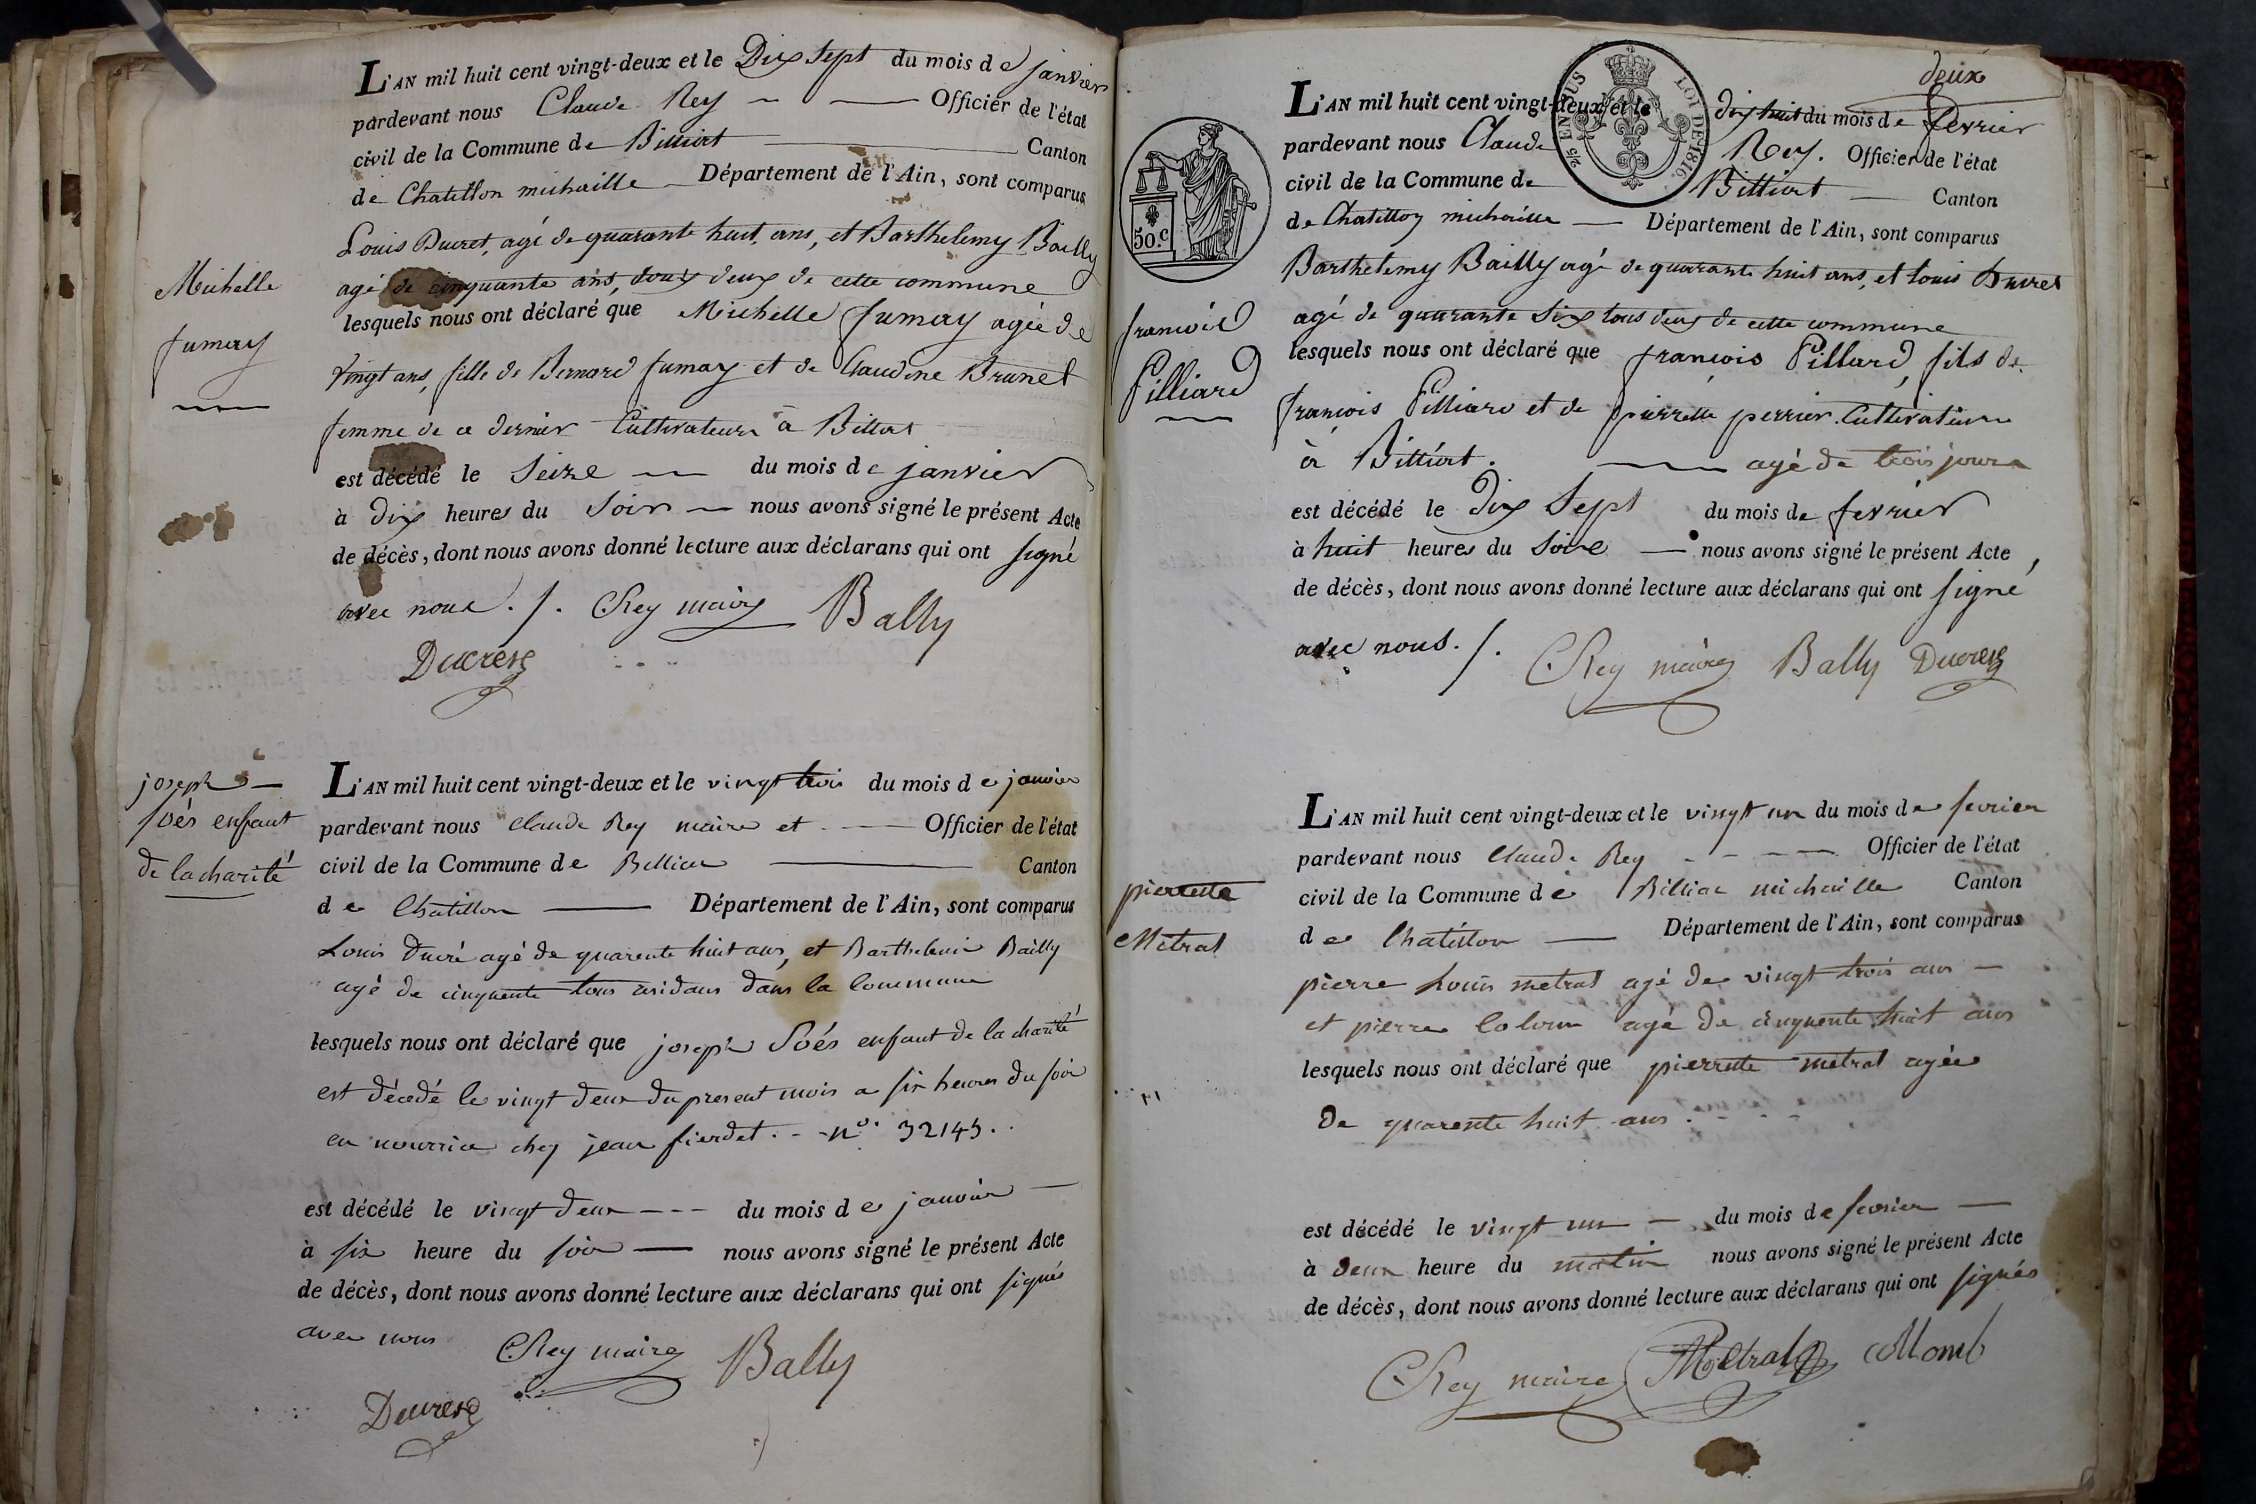 L'AN mil huit cent vingt-deux et le Dix sept du mois de janvier
pardevant nous Claude Rey Officier de l'état
civil de la Commune de Billiat Canton
de Chatillon michaille Département de l'Ain, sont comparus
Louis Ducret, agé de quarante huit ans, et Barthelemy Bailly
agé de cinquante ans, tous deux de cette commune
Michelle
fumay
lesquels nous ont déclaré que Michelle fumay agée de
vingt ans, fille de Bernard fumay et de Claudine Brunet
femme de ce dernier Cultivateurs à Billiat
est décédé le Seize du mois de janvier
à dix heures du Soir nous avons signé le présent Acte
de décès, dont nous avons donné lecture aux déclarans qui ont signé
avec nous ./. C Rey maire Bally
Ducrest
joseph
foés enfant
de la charité
L'AN mil huit cent vingt-deux et le vingt trois du mois de janvier
pardevant nous Claude Rey maire et Officier de l'état
civil de la Commune de Billiat Canton
de Chatillon Département de l'Ain, sont comparus
Louis Ducré agé de quarente huit ans, et Barthelemi Bailly
agé de cinquente tous residans dans la Commune
lesquels nous ont déclaré que joseph foés enfant de la charité
est décedé le vingt deux du present mois a six heures du soir
en nourrice chez jean fierdet. - - n°. 32145.
est décédé le vingt deux - - - du mois de janvier
à six heure du soir nous avons signé le présent Acte
de décès, dont nous avons donné lecture aux déclarans qui ont signés
avec nous C Rey maire Bally
Ducrest
50. c
2/5 EN SUS LOI DE 1816.
deux
L'AN mil huit cent vingt-deux et le dix huit du mois de fevrier
pardevant nous Claude Rey. Officier de l'état
civil de la Commune de Billiat Canton
de Chatillon michaille Département de l'Ain, sont comparus
Barthelemy Bailly agé de quarante huit ans, et Louis Ducret
agé de quarante six tous deux de cette commune
francois
Pilliard
lesquels nous ont déclaré que francois Pillard, fils de
francois Pilliard et de pierrette perrier. Cultivateurs
à Billiat. agé de trois jours
est décédé le dix Sept du mois de fevrier
à huit heures du Soire nous avons signé le présent Acte
de décès, dont nous avons donné lecture aux déclarans qui ont signé
avec nous. /. C Rey maire Bally Ducrest
pierrette
Metral
L'AN mil huit cent vingt-deux et le vingt un du mois de fevrier
pardevant nous Claude Rey Officier de l'état
civil de la Commune de Billiat michaille Canton
de Chatillon Département de l'Ain, sont comparus
pierre Louis metral agé de vingt trois ans
et pierre Colomb agé de cinquente huit ans
lesquels nous ont déclaré que pierrette metral agée
de quarente huit ans.
est décédé le vingt un du mois de fevrier
à deux heure du matin nous avons signé le présent Acte
de décès, dont nous avons donné lecture aux déclarans qui ont signés
C Rey maire Metral Collomb